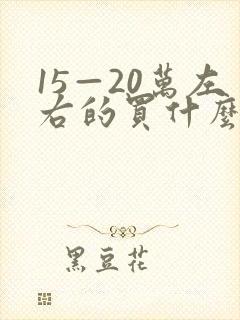 15—20萬左
右的買什麼
黑豆花